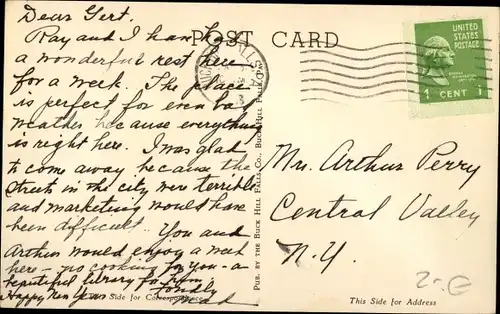 Dear Gert.
Ray and I have had
a wonderful rest here
for a week. The place
is perfect for even bad
weather because everything
is right here. I was glad
to come away because the
streets in the city were terrible
and marketing would have
been difficult. You and
Arthur would enjoy a week
here - no cooking for you - a
beautiful library
Happy New Year Fondly
POST CARD
UNITED
STATES
POSTAGE
1 CENT 1
PUB. BY THE BUCK HILL FALLS CO., BUCK HILL FALLS, PA.
Mr. Arthur Perry
Central Valley
N.Y.
Side for Correspondence
This Side for Address